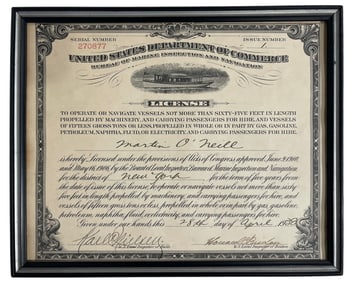 SERIAL NUMBER
270877
ISSUE NUMBER
1
UNITED STATES DEPARTMENT OF COMMERCE
BUREAU OF MARINE INSPECTION AND NAVIGATION
LICENSE
TO OPERATE OR NAVIGATE VESSELS NOT MORE THAN SIXTY-FIVE FEET IN LENGTH
PROPELLED BY MACHINERY, AND CARRYING PASSENGERS FOR HIRE, AND VESSELS
OF FIFTEEN GROSS TONS OR LESS, PROPELLED IN WHOLE OR IN PART BY GAS, GASOLINE,
PETROLEUM, NAPHTHA, FLUID, OR ELECTRICITY, AND CARRYING PASSENGERS FOR HIRE.
Martin O'Neill
is hereby Licensed under the provisions of Acts of Congress approved, June 9, 1910,
and May by the Local Inspectors, Bureau of Marine Inspection and Navigation
for the district of New York for the term of five years from the
date of issue of this license. To operate or navigate vessels not more than sixty
five feet in length propelled by machinery, and carrying passengers for hire, and
vessels of fifteen gross tons or less, propelled in whole or in part by gas, gasoline,
petroleum, naphtha, fluid, or electricity, and carrying passengers for hire.
Given under our hands this 28th day of April